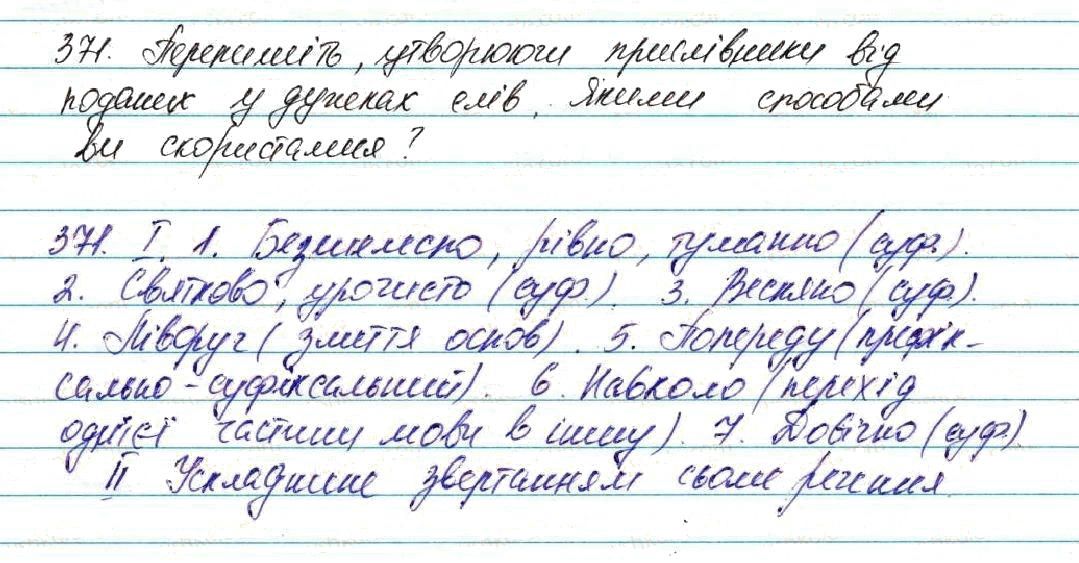 371. Перепишіть, утворюючи прислівники від
поданих у дужках слів. Якими способами
ви скористалися?
371. I. 1. Безшелесно, рівно, туманно (суф.).
2. Святково, урочисто (суф.). 3. Весняно (суф.).
4. Ліворуч (злиття основ). 5. Попереду (префік-
сально-суфіксальний). 6. Навколо (перехід
однієї частини мови в іншу). 7. Довічно (суф.).
II Ускладнене звертанням сьоме речення